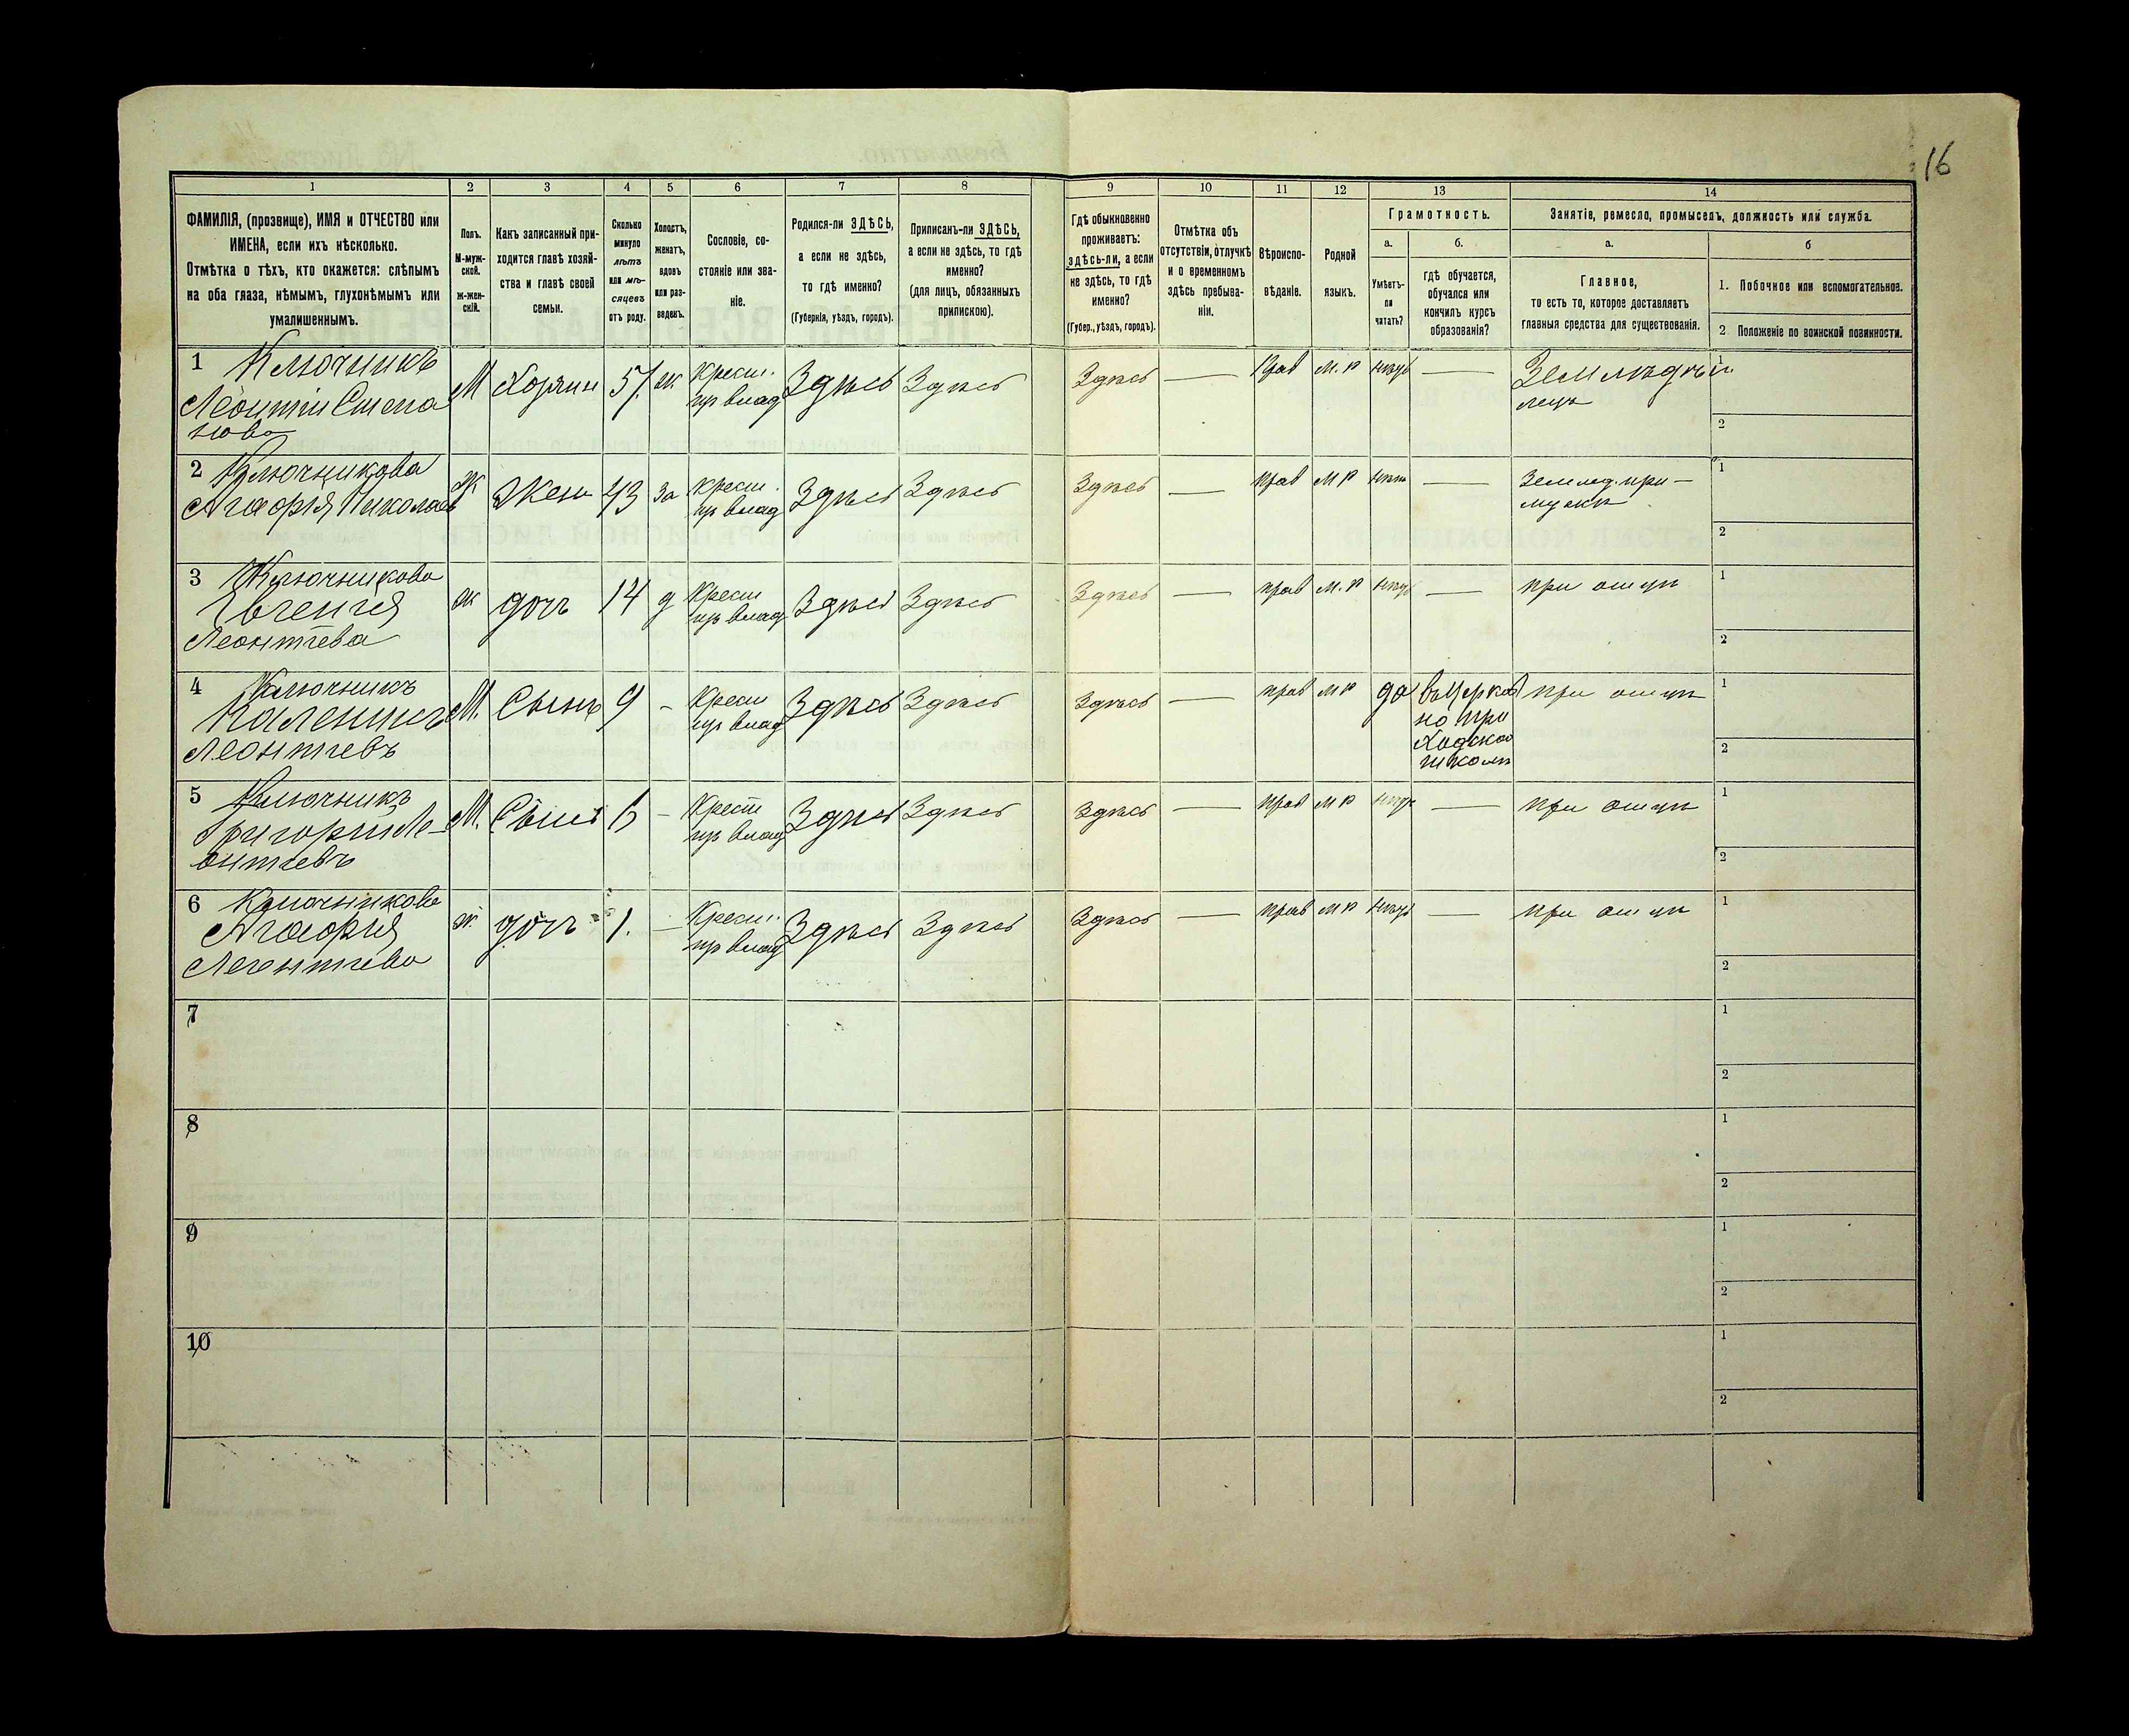 16
1 2 3 4 5 6 7 8 9 10 11 12 13 14
ФАМИЛІЯ, (прозвище), ИМЯ и ОТЧЕСТВО или
ИМЕНА, если ихъ нѣсколько.
Отмѣтка о тѣхъ, кто окажется: слѣпымъ
на оба глаза, нѣмымъ, глухонѣмымъ или
умалишеннымъ.
Полъ.
М-муж-
ской.
Ж-жен-
скій.
Какъ записанный при-
ходится главѣ хозяй-
ства и главѣ своей
семьи.
Сколько
минуло
лѣтъ
или мѣ-
сяцевъ
отъ роду.
Холостъ,
женатъ,
вдовъ
или раз-
веденъ.
Сословіе, со-
стояніе или зва-
ніе.
Родился-ли ЗДѢСЬ,
а если не здѣсь,
то гдѣ именно?
(Губернія, уѣздъ, городъ).
Приписанъ-ли ЗДѢСЬ,
а если не здѣсь, то гдѣ
именно?
(для лицъ, обязанныхъ
припискою).
Гдѣ обыкновенно
проживаетъ:
здѣсь-ли, а если
не здѣсь, то гдѣ
именно?
(Губер., уѣздъ, городъ).
Отмѣтка объ
отсутствіи, отлучкѣ
и о временномъ
здѣсь пребыва-
ніи.
Вѣроиспо-
вѣданіе.
Родной
языкъ.
Грамотность.
а.
Умѣетъ-
ли
читать?
б.
гдѣ обучается,
обучался или
кончилъ курсъ
образованія?
Занятіе, ремесло, промыселъ, должность или служба.
а.
Главное,
то есть то, которое доставляетъ
главныя средства для существованія.
б
1. Побочное или вспомогательное.
2 Положеніе по воинской повинности.
1 Ключникъ
Леонтій Степа
нова
М Хозяин 51 ж Крест.
пр влад Здѣсь Здѣсь Здѣсь — Прав М. Р — Землѣдѣ
лецъ
1
2
2 Ключникова
Агафія Николаев
Ж Жена 43 за крест.
пр влад Здѣсь Здѣсь Здѣсь — прав М Р нѣтъ — Землед. при
мужѣ
1
2
3 Ключникова
Евгенія
Леонтіева
ж дочь 14 д Крест
пр влад Здѣсь Здѣсь Здѣсь — прав М. Р — при отцѣ
1
2
4 Ключникъ
Каленикъ
Леонтіевъ
М. Сынъ 9 – Крест
пр влад Здѣсь Здѣсь Здѣсь — прав М Р да въ Церков
но при
Ходской
школѣ
при отцѣ
1
2
5 Ключникъ
Григорій Ле-
онтіевъ
М. Сынъ 6 – Крест
пр влад Здѣсь Здѣсь Здѣсь — прав М Р — при отцѣ
1
2
6 Ключникова
Агафія
Леонтіева
ж. дочь 1. — Крест.
пр влад Здѣсь Здѣсь Здѣсь — прав М Р — при отцѣ
1
2
7
1
2
8
1
2
9
1
2
10
1
2